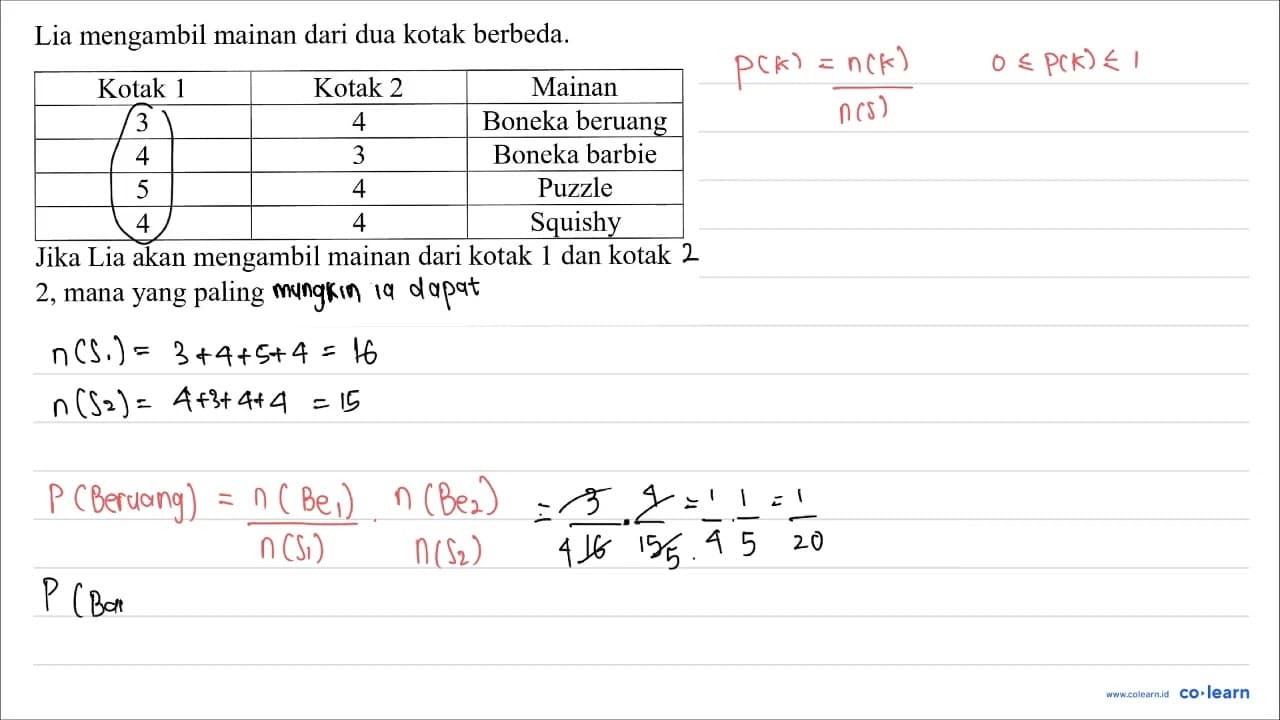 Lia mengambil mainan dari dua kotak berbeda.
Kotak 1 Kotak 2 Mainan
3 4 Boneka beruang
4 3 Boneka barbie
5 4 Puzzle
4 4 Squishy
Jika Lia akan mengambil mainan dari kotak 1 dan kotak 2
2, mana yang paling mungkin ia dapat
P(K) = n(K)/n(S) 0 ≤ P(K) ≤ 1
n(S₁) = 3+4+5+4 = 16
n(S₂) = 4+3+4+4 = 15
P(Beruang) = n(Be₁)/n(S₁) . n(Be₂)/n(S₂) = 3/4 16 . 4/15 5 = 1/4 . 1/5 = 1/20
P(Bar
www.colearn.id co·learn